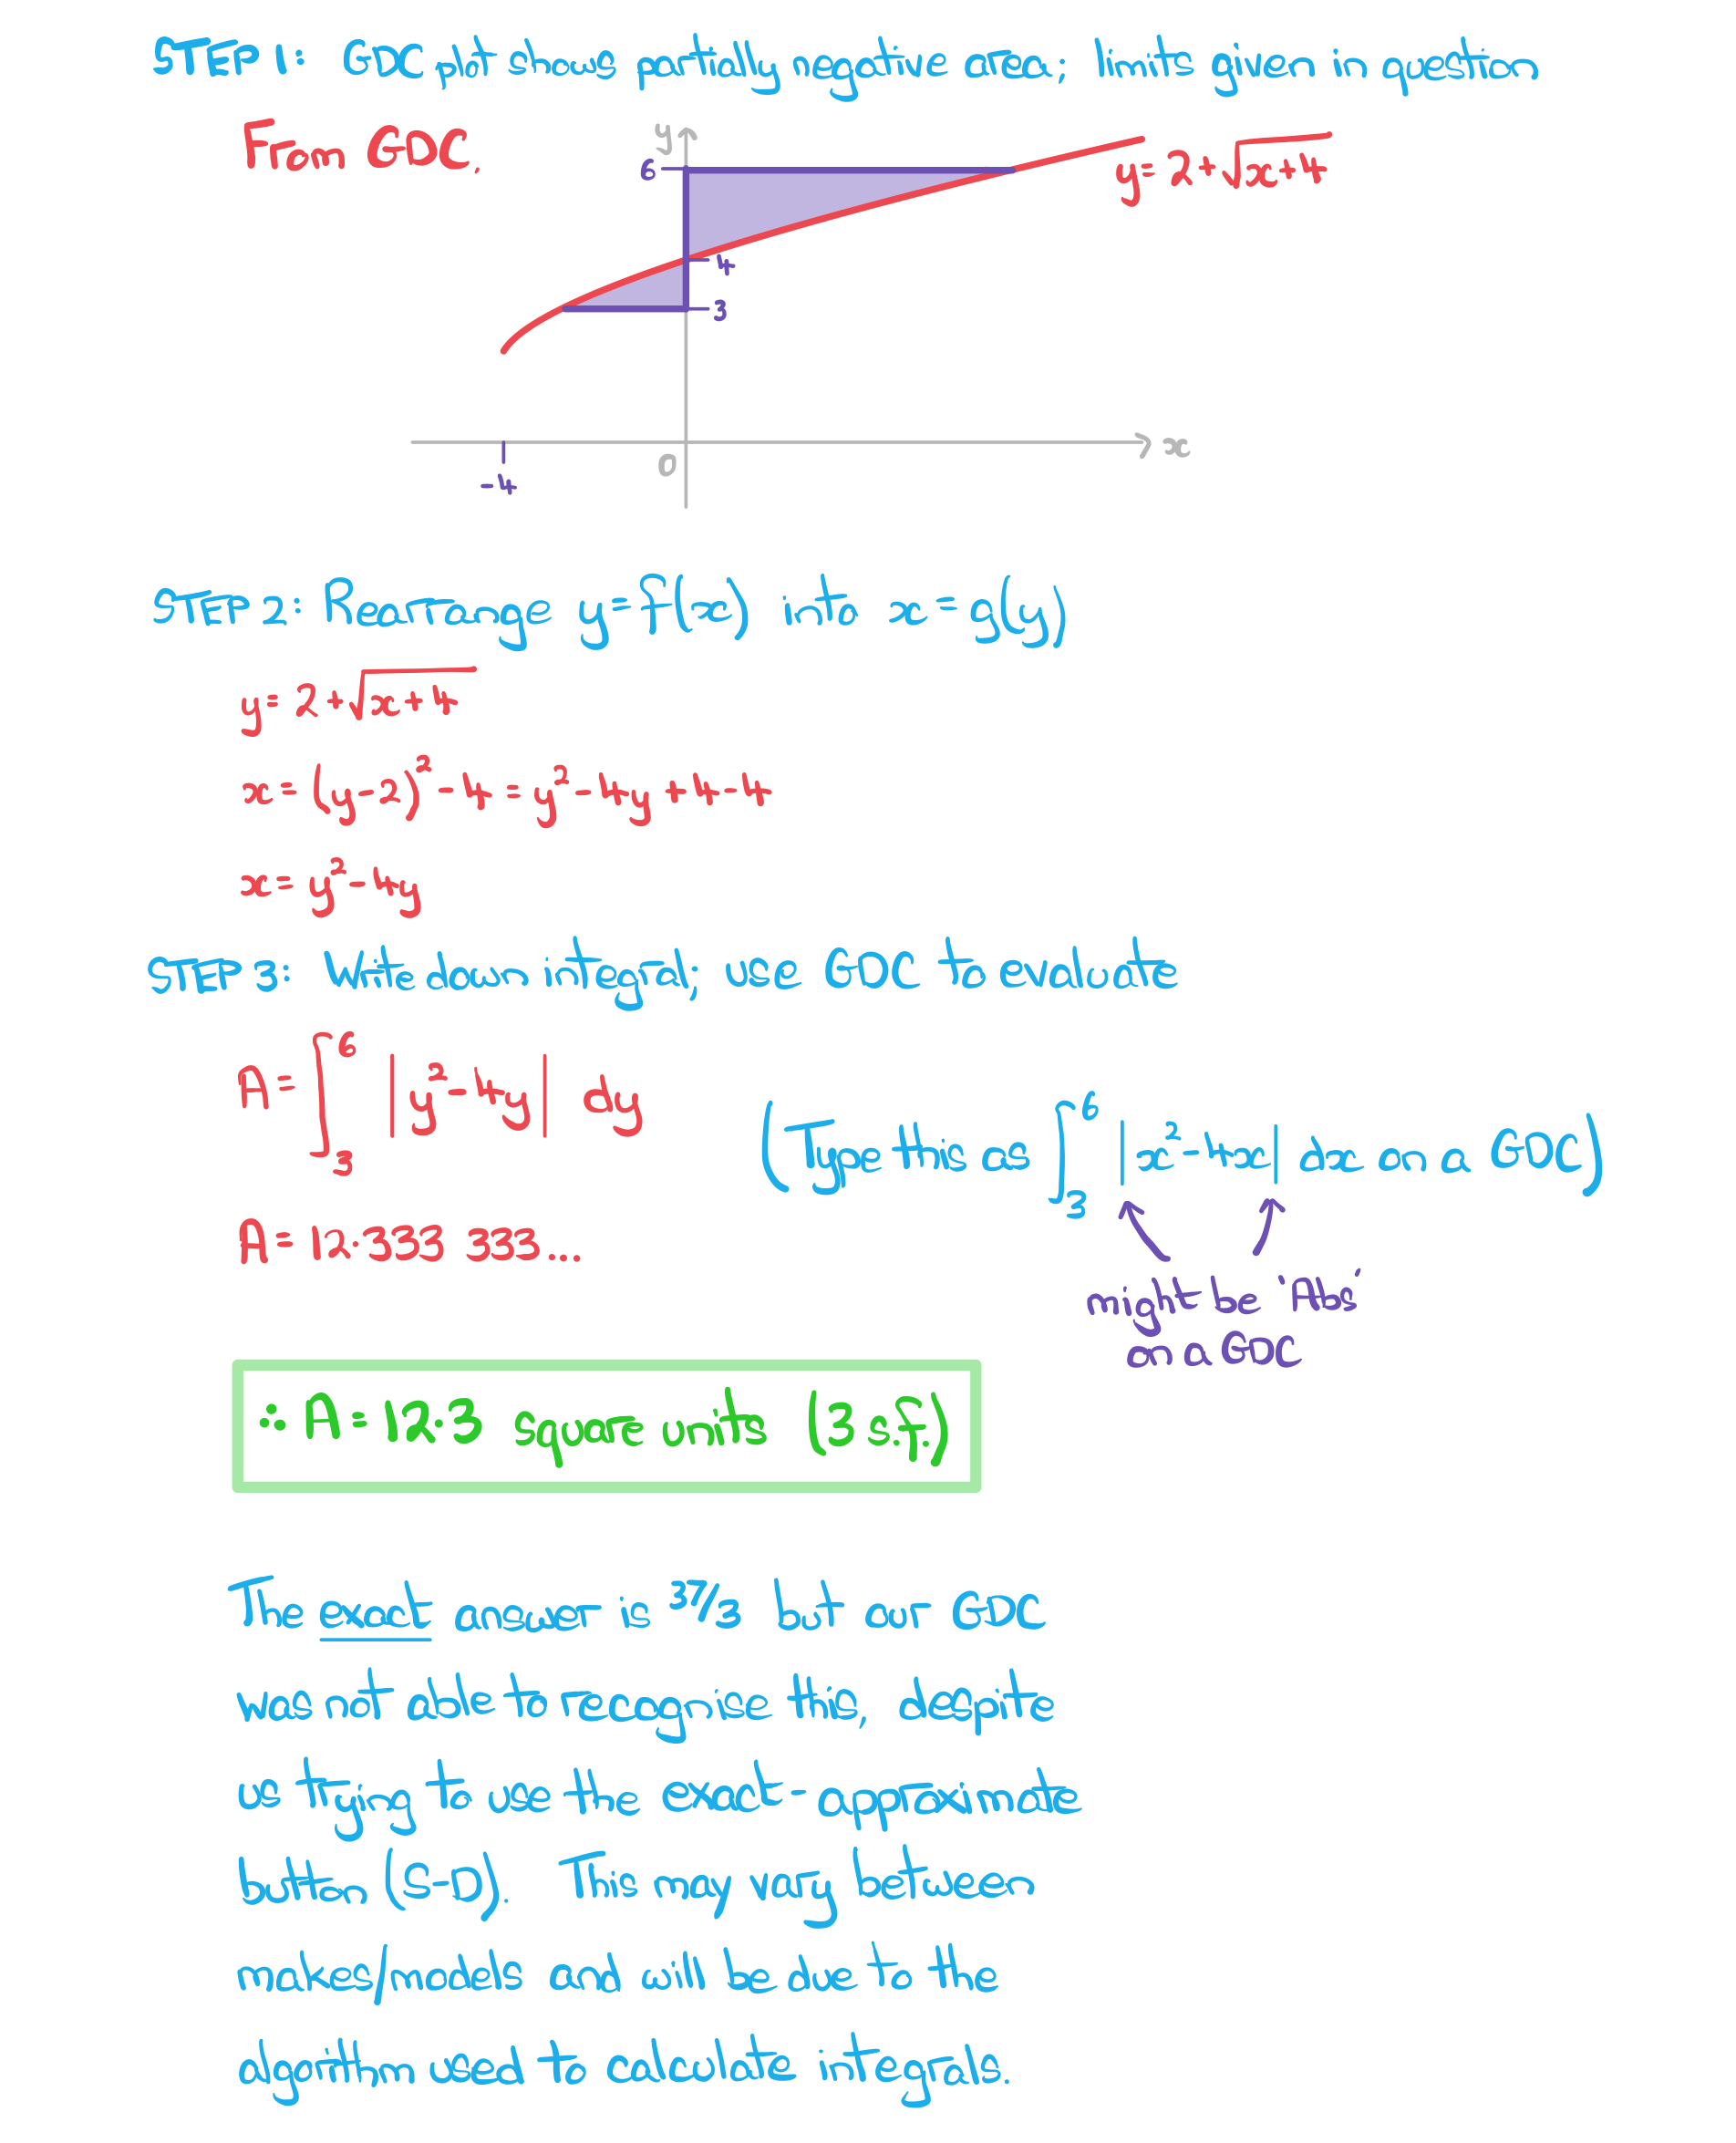 STEP 1: GDC plot shows partially negative area; limits given in question
From GDC,
y
6
y = 2 + √x+4
4
3
0
x
-4
STEP 2: Rearrange y = f(x) into x = g(y)
y = 2 + √x+4
x = (y-2)² - 4 = y² - 4y + 4 - 4
x = y² - 4y
STEP 3: Write down integral; use GDC to evaluate
A = ∫₃⁶ |y² - 4y| dy
(Type this as ∫₃⁶ |x² - 4x| dx on a GDC)
A = 12.333 333...
might be 'Abs'
on a GDC
∴ A = 12.3 square units (3 s.f.)
The exact answer is 37/3 but our GDC
was not able to recognise this, despite
us trying to use the exact-approximate
button (S-D). This may vary between
makes/models and will be due to the
algorithm used to calculate integrals.